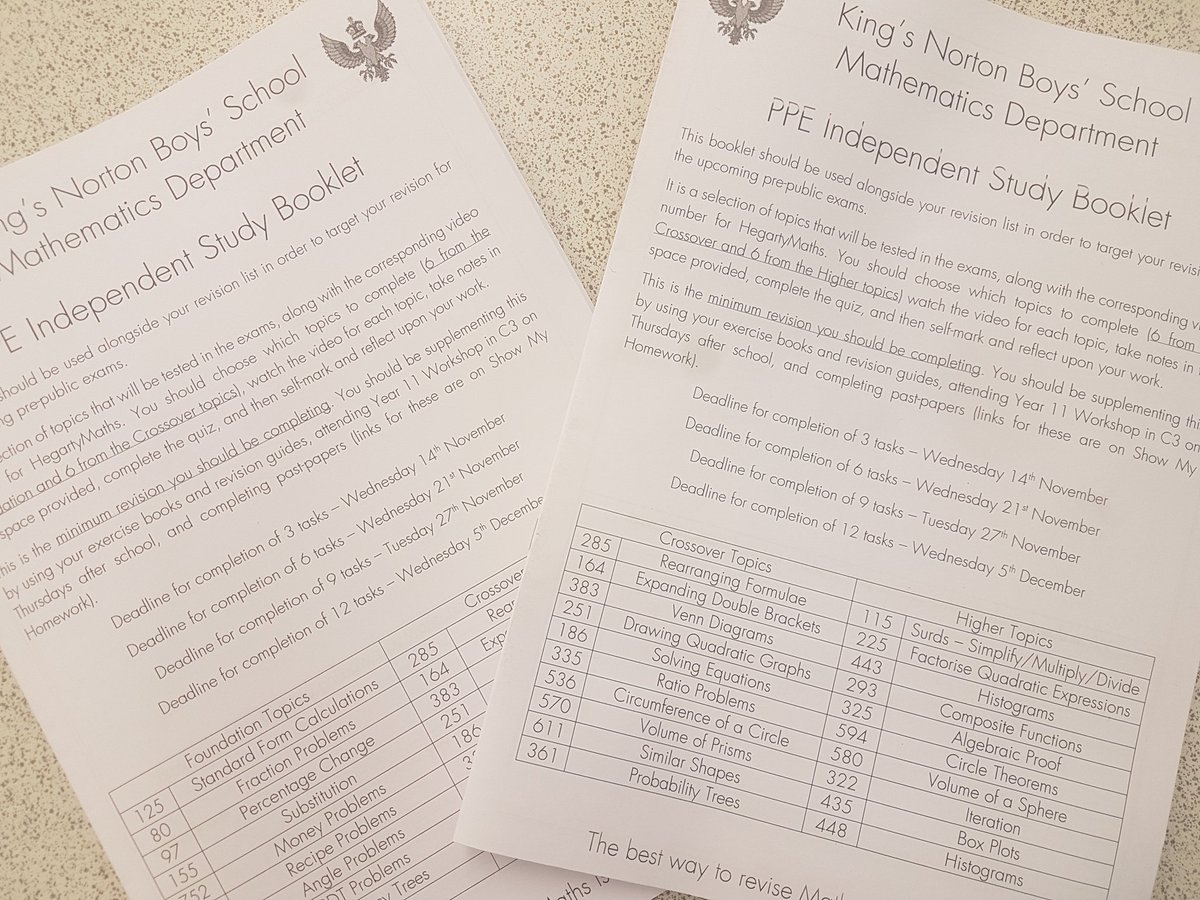 ng's Norton Boys' School
Mathematics Department
E Independent Study Booklet
should be used alongside your revision list in order to target your revision for
ng pre-public exams.
ection of topics that will be tested in the exams, along with the corresponding video
for HegartyMaths. You should choose which topics to complete (6 from the
dation and 6 from the Crossover topics), watch the video for each topic, take notes in
space provided, complete the quiz, and then self-mark and reflect upon your work.
his is the minimum revision you should be completing. You should be supplementing this
by using your exercise books and revision guides, attending Year 11 Workshop in C3 on
Thursdays after school, and completing past-papers (links for these are on Show My
Homework).
Deadline for completion of 3 tasks – Wednesday 14th November
Deadline for completion of 6 tasks – Wednesday 21st November
Deadline for completion of 9 tasks – Tuesday 27th November
Deadline for completion of 12 tasks – Wednesday 5th Decembe
Foundation Topics Crossove
125 Standard Form Calculations 285 Rear
80 Fraction Problems 164 Exp
97 Percentage Change 383
155 Substitution 251
752 Money Problems 186
Recipe Problems
Angle Problems
DT Problems
y Trees
aths is
King's Norton Boys' School
Mathematics Department
PPE Independent Study Booklet
This booklet should be used alongside your revision list in order to target your revis
the upcoming pre-public exams.
It is a selection of topics that will be tested in the exams, along with the corresponding
number for HegartyMaths. You should choose which topics to complete (6 from
Crossover and 6 from the Higher topics) watch the video for each topic, take notes in
space provided, complete the quiz, and then self-mark and reflect upon your work.
This is the minimum revision you should be completing. You should be supplementing thi
by using your exercise books and revision guides, attending Year 11 Workshop in C3 on
Thursdays after school, and completing past-papers (links for these are on Show My
Homework).
Deadline for completion of 3 tasks – Wednesday 14th November
Deadline for completion of 6 tasks – Wednesday 21st November
Deadline for completion of 9 tasks – Tuesday 27th November
Deadline for completion of 12 tasks – Wednesday 5th December
Crossover Topics Higher Topics
285 Rearranging Formulae 115 Surds – Simplify/Multiply/Divide
164 Expanding Double Brackets 225 Factorise Quadratic Expressions
383 Venn Diagrams 443 Histograms
251 Drawing Quadratic Graphs 293 Composite Functions
186 Solving Equations 325 Algebraic Proof
335 Ratio Problems 594 Circle Theorems
536 Circumference of a Circle 580 Volume of a Sphere
570 Volume of Prisms 322 Iteration
611 Similar Shapes 435 Box Plots
361 Probability Trees 448 Histograms
The best way to revise Mat